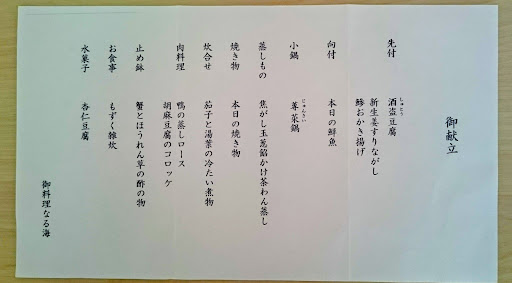 御献立
先付 酒盗豆腐
しゅとう
新生姜すりながし
鯵おかき揚げ
向付 本日の鮮魚
小鍋 蓴菜鍋
じゅんさい
蒸しもの 焦がし玉葱餡かけ茶わん蒸し
焼き物 本日の焼き物
炊合せ 茄子と湯葉の冷たい煮物
肉料理 鴨の蒸しロース
胡麻豆腐のコロッケ
止め鉢 蟹とほうれん草の酢の物
お食事 もずく雑炊
水菓子 杏仁豆腐
御料理なる海